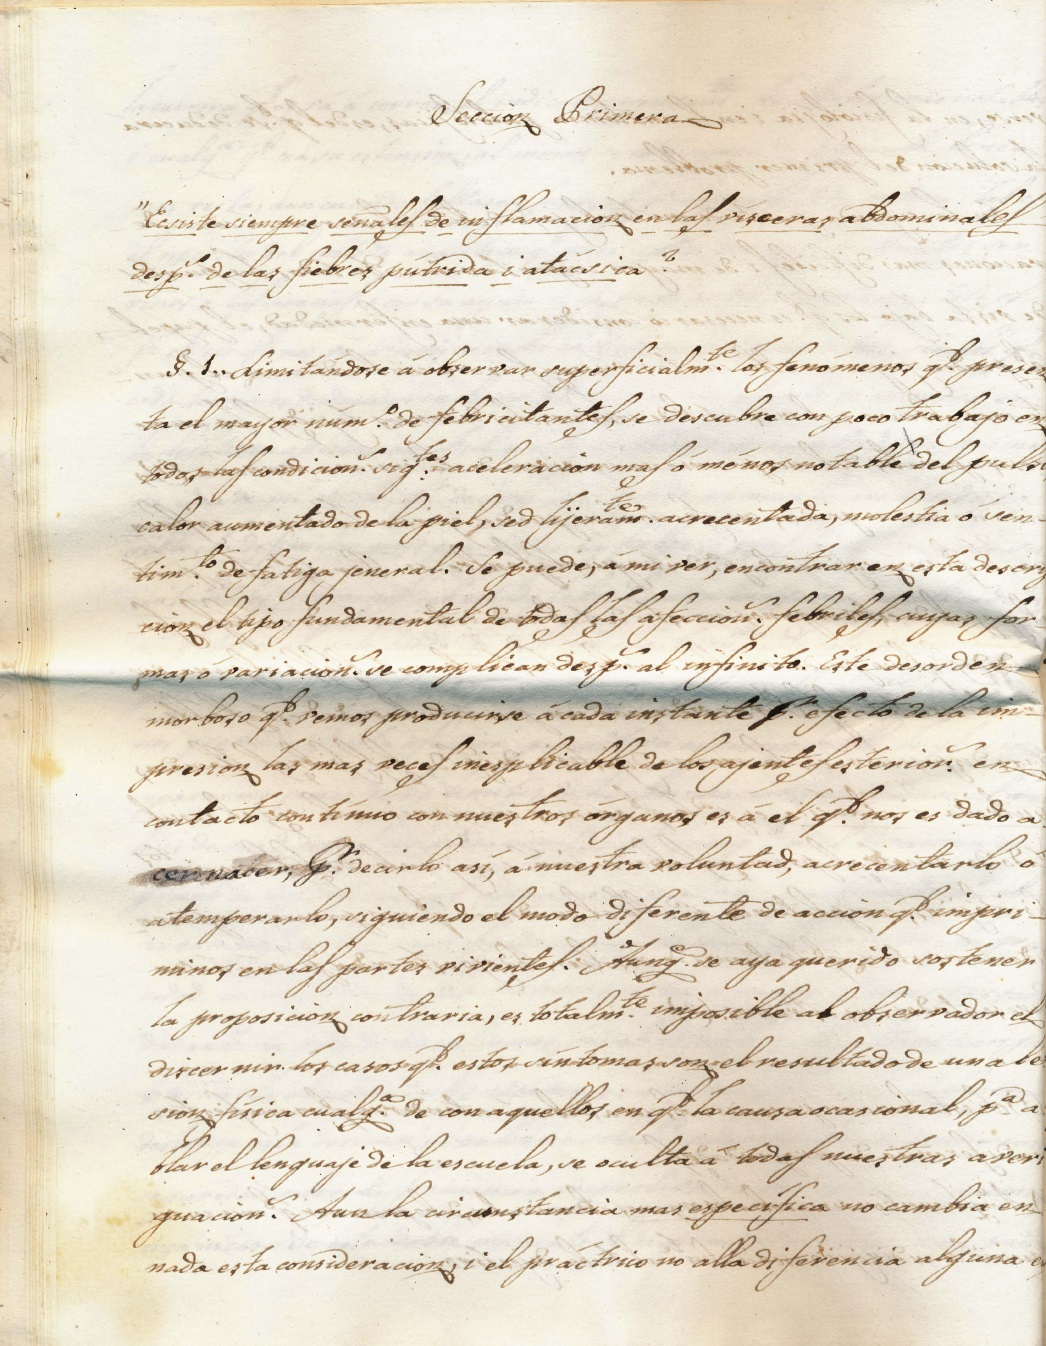 Seccion Primera
"Ecsiste siempre señales de inflamacion en las vísceras abdominales
desp.s de las fiebres pútrida i atácsica?
§. 1.. Limitándose á observar superficialm.te los fenómenos q.e presen
ta el mayor núm.o de febricitantes, se descubre con poco trabajo en
todos las condicion.s sig.tes aceleracion mas ó ménos notable del pulso
calor aumentado de la piel, sed lijeram.te acrecentada, molestia ó sen-
tim.to de fatiga jeneral. Se puede, á mi ver, encontrar en esta descrip
cion el tipo fundamental de todas las afeccion.s febriles, cuyas for
mas ó variacion.s se complican desp.s al infinito. Este desorden
morboso q.e vemos producirse á cada instante p.r efecto de la im-
presion las mas veces inesplicable de los ajentes esterior.s en
contacto contínuo con nuestros órganos es á el q.e nos es dado a
cer nacer, p.r decirlo así, á nuestra voluntad, acrecentarlo ó
atemperarlo, siguiendo el modo diferente de accion q.e impri-
mimos en las partes vivientes. Aunq.e se aya querido sostener
la proposicion contraria, es totalm.te imposible al observador el
discernir los casos q.e estos síntomas son el resultado de una le
sion física cualq.a de con aquellos en q.e la causa ocasional, p.a a
blar el lenguaje de la escuela, se oculta á todas nuestras averi
guacion.s Aun la circunstancia mas específica no cambia en
nada esta consideracion, i el práctrico no alla diferencia alguna e